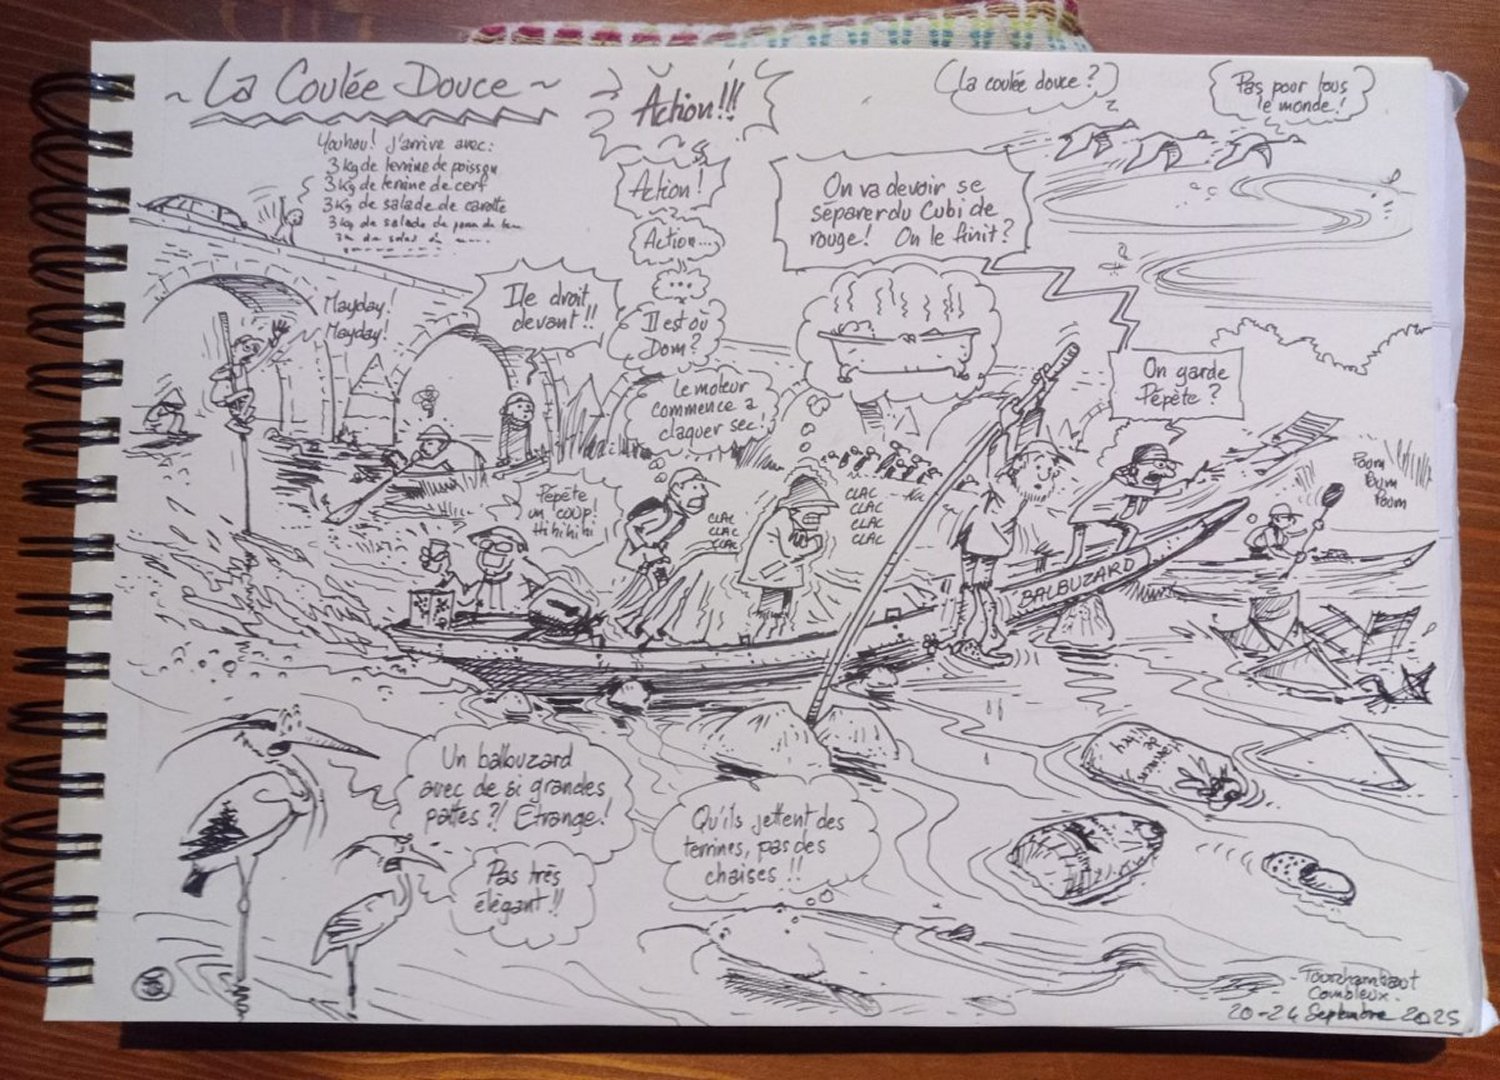 ~ La Coulée Douce ~
Youhou! j'arrive avec:
3 kg de terrine de poisson
3 kg de terrine de cerf
3 kg de salade de carotte
3 kg de salade de
Action!!!
Action!
Action...
...
Il est où
Dom?
La coulée douce?
Pas pour tous
le monde!
On va devoir se
séparer du Cubi de
rouge! On le finit?
On garde
Pépète?
Mayday!
Mayday!
Ile droit
devant!!
Le moteur
commence a
claquer sec!
Pépète
un coup!
Hi hi hi hi
CLAC
CLAC
CLAC
CLAC
CLAC
CLAC
CLAC
BALBUZARD
Poum
Poum
Poum
Un balbuzard
avec de si grandes
pattes?! Etrange!
Pas très
élégant!!
Qu'ils jettent des
terrines, pas des
chaises!!
Tourchambaut
Combleux.
20-24 Septembre 2025